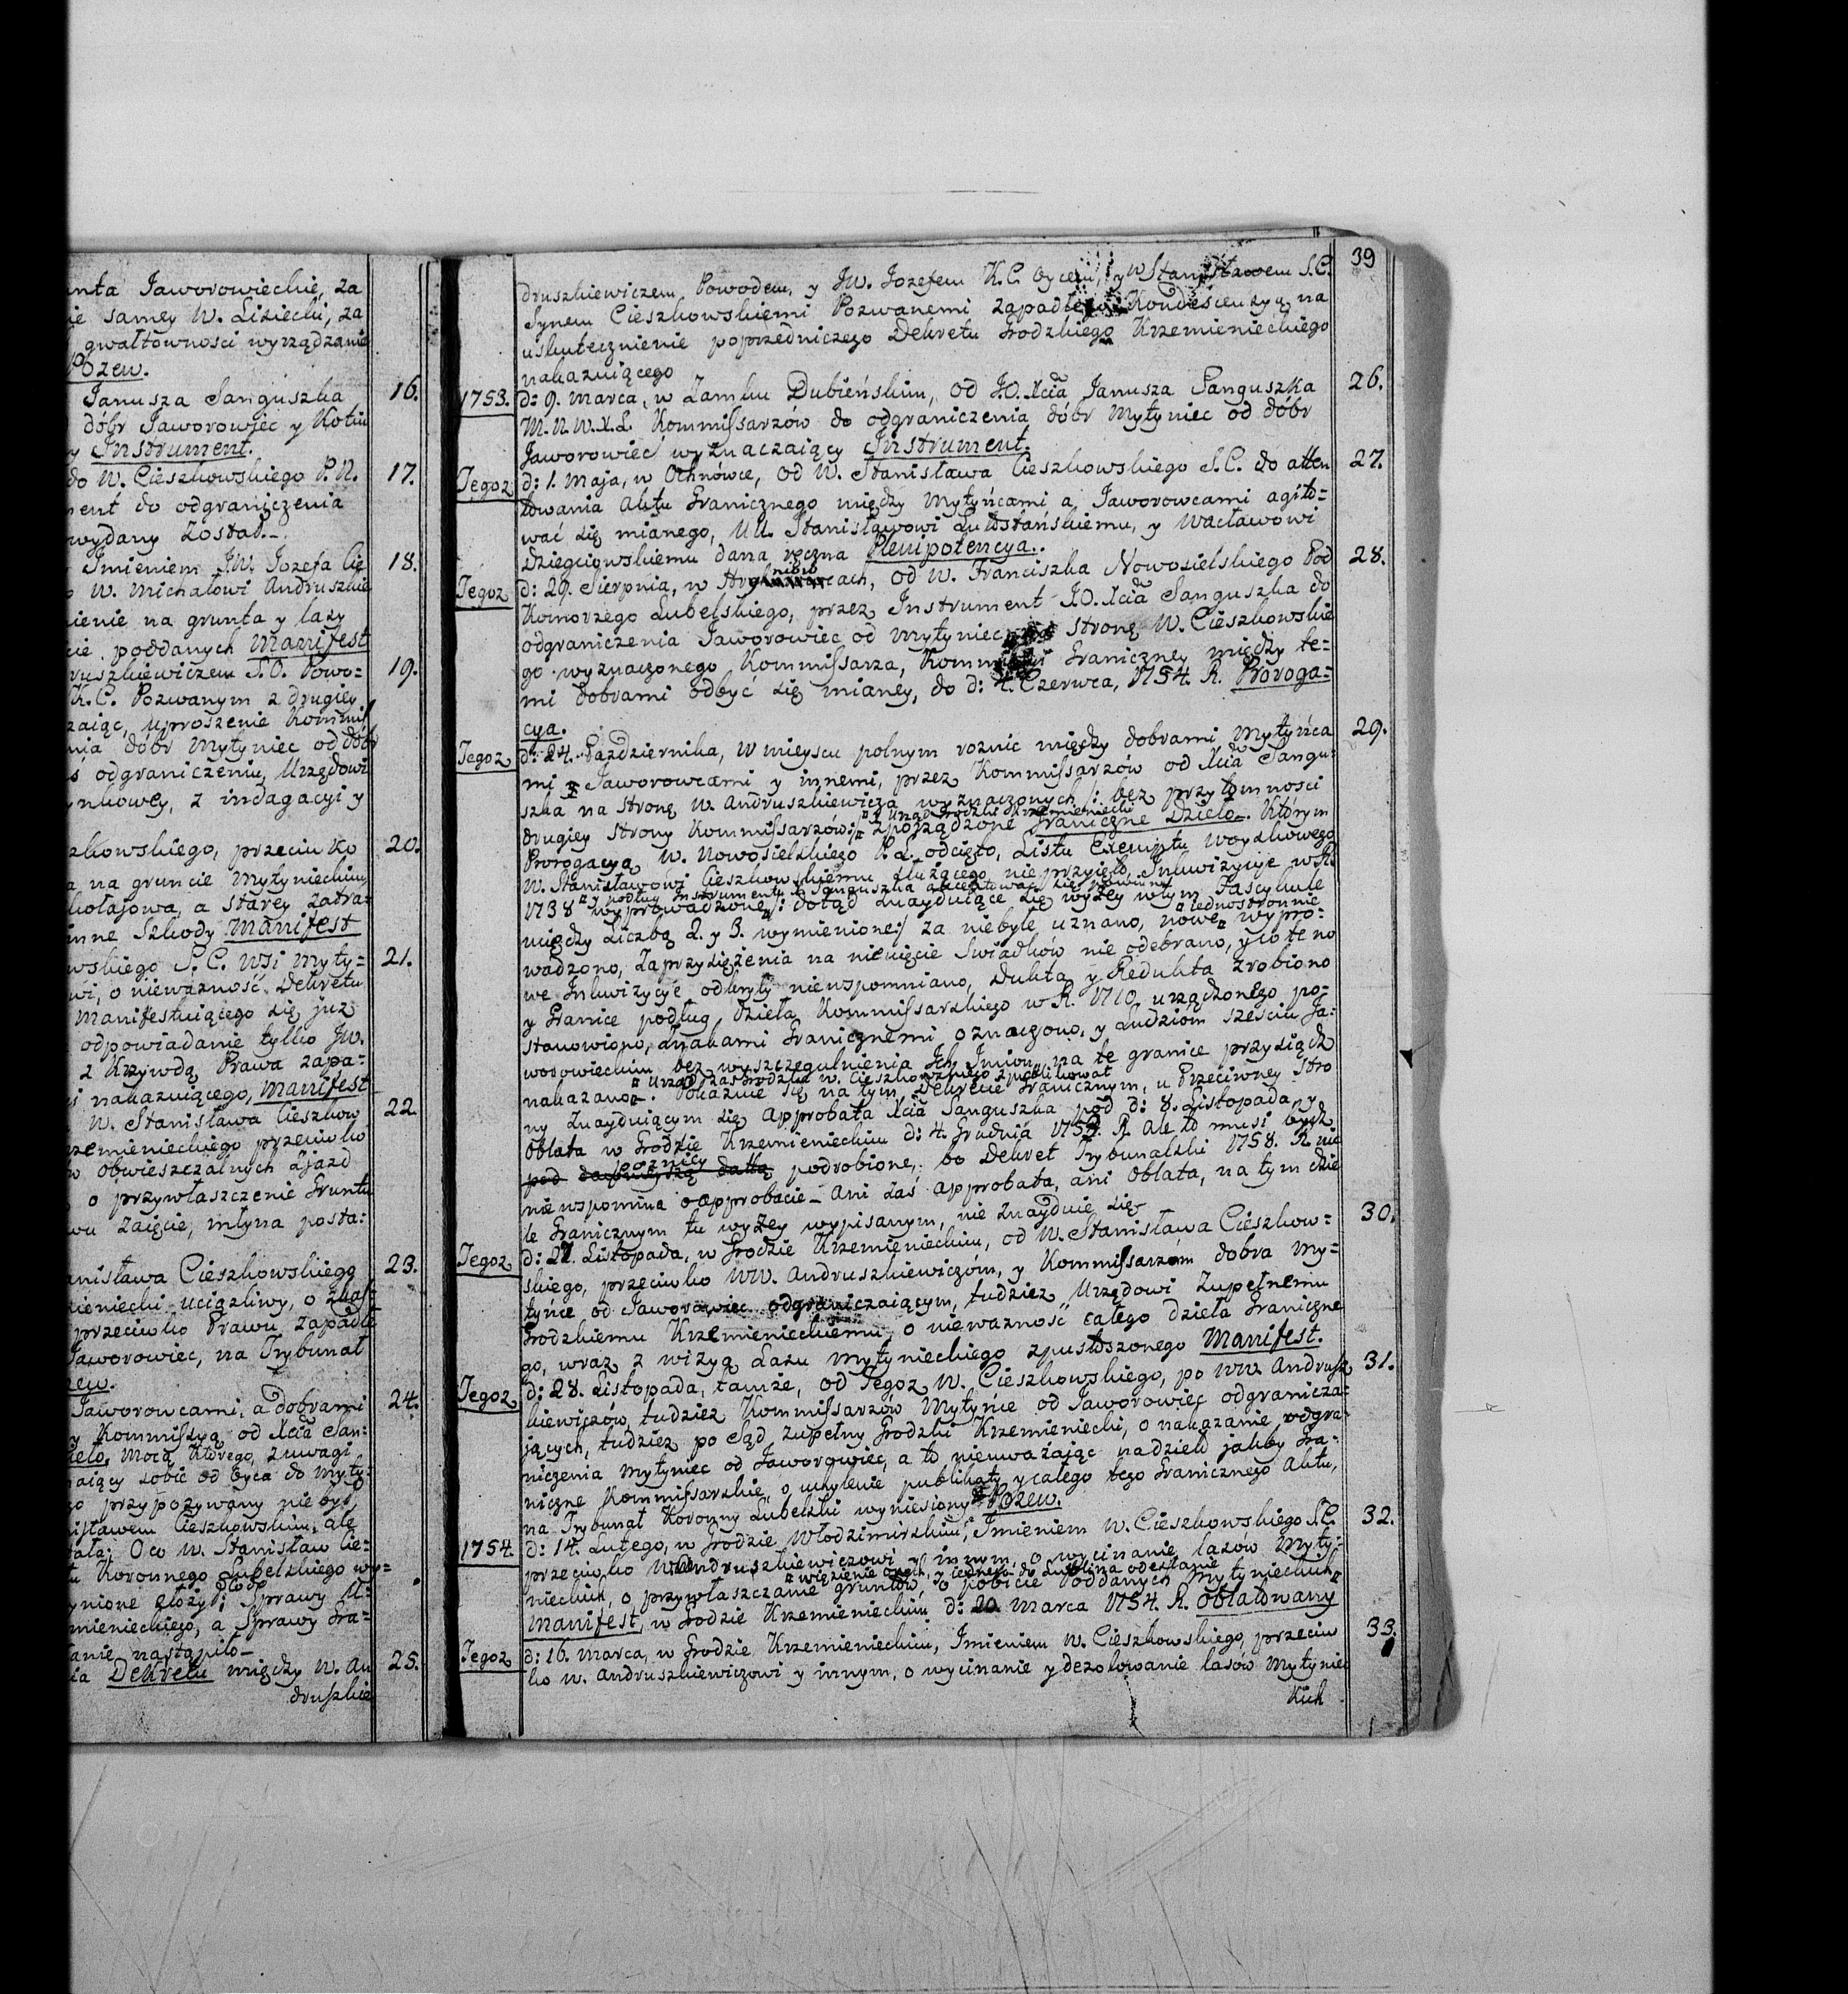 nta Jaworowieckie, za
ie samey W. Lisiecki, za
gwałtownosci wyrządzanie
Pozew.
Janusza Sanguszka 16.
dóbr Jaworowiec y Kotiu
y Instrument.
do W. Cieszkowskiego P. N. 17.
ment do odgraniczenia
wydany został.
Imieniem JW. Jozefa Cie 18.
W. Michałowi Andruszkie
ienie na grunta y lasy
cie poddanych Manifest
ruszkiewiczem S. O. Powo= 19.
K. C. Pozwanym z drugiey
zaiąc, uproszenie Kommis
nia dóbr Mytyniec od dóbr
ś odgraniczeniu, Urzędowi
ynkowey, z indagacyi y
zkowskiego, przeciw ko 20.
a na gruncie Mytynieckim
kołajowa, a starey zatra=
inne Szkody Manifest
wskiego S. C. Wsi Myty= 21.
wi, o nieważność Dekretu
Manifestuiącego się już
odpowiadanie tylko JW.
z Krzywdą Prawa zapa=
i nakazuiącego, Manifest
W. Stanisława Cieszkow 22.
rzemienieckiego przeciwko
w obwieszczalnych Zjazd
o przywłaszczenie Gruntu
wu zaięcie, młyna posta=
anisława Cieszkowskiego 23.
ieniecki uciążliwy, o
przeciwko Prawu zapadłe
Jaworowiec, na Trybunał
zew.
Jaworowcami, a dobrami 24.
y Kommissyą od Xcia San=
ieło, Mocą Którego, zuwagi
naiący sobie od Oyca do Myty=
go przypozywany nie był
isławem Cieszkowskim, ale
ała; Oco W. Stanisław Cie=
tu Koronnego Lubelskiego wy=
ynione złoży, Sprawy
mienieckiego, a Sprawy Gra=
anie nastąpiło
ia Dekretu między W. An 25.
druszkie
39
druszkiewiczem Powodem, y JW. Jozefem K. C. Oycem, y W Stanisławem S. C.
Synem Cieszkowskiemi Pozwanemi zapadłego Kondescensyą na
uskutecznienie poprzedniczego Dekretu Grodzkiego Krzemienieckiego
nakazuiącego
1753. d: 9. Marca, w Zamku Dubieńskim, od J.O. Xcia Janusza Sanguszka 26.
M. N. W. X. L. Kommissarzów do odgraniczenia dóbr Mytyniec od dóbr
Jaworowiec wyznaczaiący Instrument.
Tegoz d: 1. Maja, w Ochnówce, od W. Stanisława Cieszkowskiego S. C. do atten 27.
towania Aktu Granicznego między Mytyńcami a Jaworowcami agito=
wać się mianego, UU. Stanisławowi Lutostańskiemu, y Wacławowi
Dzięciowskiemu dana ręczna Plenipotencya.
Tegoz d: 29. Sierpnia, w od W. Franciszka Nowosielskiego Pod 28.
Komorzego Lubelskiego, przez Instrument J.O. Xcia Sanguszka do
odgraniczenia Jaworowiec od Mytyniec stronę W. Cieszkowskie
go wyznaczonego Kommissarza, Graniczney między te=
mi dobrami odbyć się mianey, do d: Czerwca, 1754. R. Proroga=
cya.
Tegoz d: 24. Pazdziernika, w mieyscu polnym roznic między dobrami Mytyńca 29.
mi Jaworowcami y innemi, przez Kommissarzów od Xcia Sangu=
szka na stronę W. Andruszkiewicza wyznaczonych /: bez przytomnosci
y Urząd Grodzki Krzemieniecki
drugiey strony Kommissarzów:/ zporządzone Graniczne Dzieło. Którym
Prorogacyą W. Nowosielskiego P. L. odcięto, Listu Exemptu Woyskowego
W. Stanisławowi Cieszkowskiemu służącego nieprzyięto, Inkwizycyje w R.
y podług Instrumentu X Sanguszka
1738 wyprowadzone /: dotąd znayduiące się wyżey wtym Fascykule
iednostronnie
między Liczbą 2. y 3. wymienione:/ za niebyłe uznano, nowe wypro=
wadzono, Zaprzysiężenia na nieięcie Swiadków nie odebrano, y io te no
we Inkwizycye odkryły niewspomniano, Dukta y Redukta zrobiono
y Granice podług dzieła Kommissarskiego w R. 1710 urządzonego po=
stanowiono, Znakami Granicznemi oznaczono, y Ludziom sześciu Ja=
worowieckim bez wyszczegulnienia Ich Imion, na te granice przysiądz
Urząd zaś Grodzki W. Cieszkowskiego zpublikował
nakazano. Pokazuie się na tym Dekrecie Granicznym, u Przeciwney Stro
ny znayduiącym się Approbata Xcia Sanguszka pod d: 8. Listopada, y
Oblata w Grodzie Krzemienieckim d: 4. Grudnia 1753. R. Ale to musi bydz
pozniey
pod datą podrobione, bo Dekret Trybunalski 1758. R. nic
niewspomina o approbacie — Ani zaś Approbata, ani Oblata, na tym dzie
le Granicznym tu wyżey wypisanym, nie znayduie się
Tegoz d: 27. Listopada, w Grodzie Krzemienieckim, od W. Stanisława Cieszkow= 30.
skiego, przeciwko WW. Andruszkiewiczóm, y Kommissarzóm dobra My=
tyńce od Jaworowiec odgraniczaiącym, tudziez Urzędowi Zupełnemu
Grodzkiemu Krzemienieckiemu, o nieważność całego dzieła Graniczne
go, wraz z wizyą Lasu Mytynieckiego zpustoszonego Manifest.
Tegoz d: 28. Listopada, tamże, od Tegoz W. Cieszkowskiego, po WW. Andrusz 31.
kiewiczów, tudziez Kommissarzów Mytyńce od Jaworowiec odgranicza=
jących, tudziez po Sąd zupełny Grodzki Krzemieniecki, o nakazanie odgra=
niczenia Mytyniec od Jaworowiec, a to nieuważając nadzieło jakby Gra=
niczne Kommissarskie, o uchylenie publikaty y całego tego Granicznego Aktu,
na Trybunał Koronny Lubelski wyniesiony Pozew.
1754. d: 14. Lutego, w Grodzie Włodzimirskim, Imieniem W. Cieszkowskiego S.C. 32.
przeciwko W Andruszkiewiczowi y innym, o wycinanie lasów Myty=
więzienie onych, y iednego do Lublina odesłanie
nieckich, o przywłaszczanie gruntów, o pobicie Poddanych Mytynieckich
Manifest, w Grodzie Krzemienieckim d: 20 Marca 1754. R. Oblatowany
Tegoz d: 16. Marca, w Grodzie Krzemienieckim, Imieniem W. Cieszkowskiego, przeciw 33.
ko W. Andruszkiewiczowi y innym, o wycinanie y dezolowanie lasów Mytyniec
kich